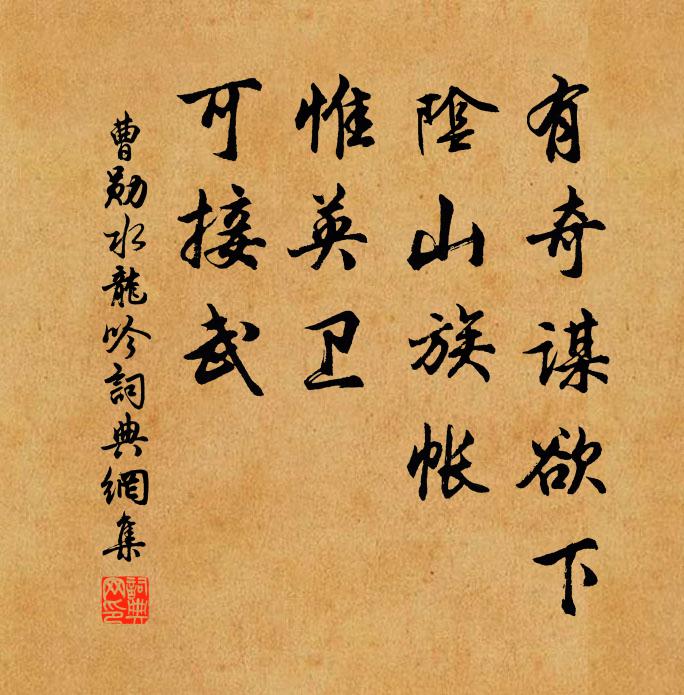 有奇謀欲下
陰山族帐
惟英卫
可接武
曹勛水龍吟詞典網集
詞典网印